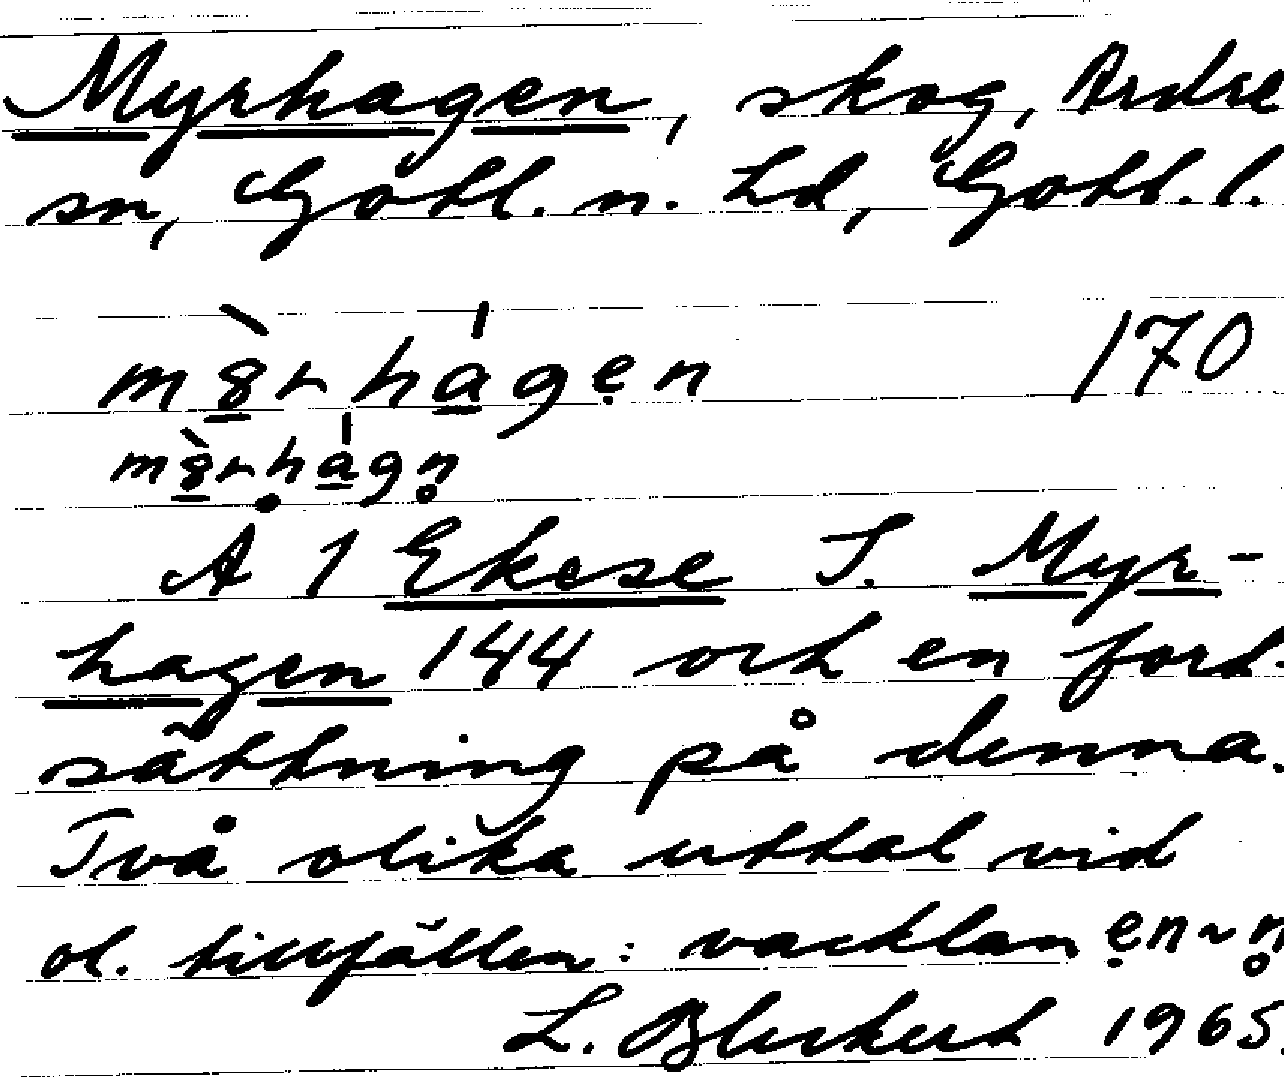 Myrhagen, skog, Ardre
sn, Gotl. n. hd, Gotl. l.
170
Å 1 Ekese S. Myr-
hagen 144 och en fort-
sättning på denna.
Två olika uttal vid
ol. tillfällen: vacklan ẹn~n̥
L. Blechert 1965.